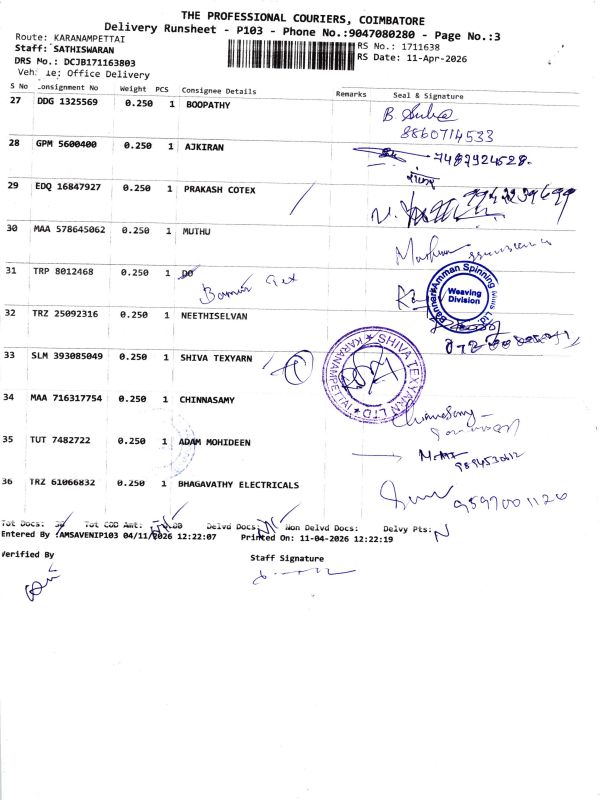 THE PROFESSIONAL COURIERS, COIMBATORE
Delivery Runsheet - P103 - Phone No.:9047080280 - Page No.:3
Route: KARANAMPETTAI
RS No.: 1711638
Staff: SATHISWARAN
RS Date: 11-Apr-2026
DRS No.: DCJB171163803
Office Delivery
S No Consignment No Weight PCS Consignee Details Remarks Seal & Signature
27 DDG 1325569 0.250 1 BOOPATHY
8860714533
28 GPM 5600400 0.250 1 AJKIRAN
7487924528.
29 EDQ 16847927 0.250 1 PRAKASH COTEX
30 MAA 578645062 0.250 1 MUTHU
31 TRP 8012468 0.250 1 DO
Bannari Amman Spinning Mills Ltd.
Weaving Division
32 TRZ 25092316 0.250 1 NEETHISELVAN
33 SLM 393085049 0.250 1 SHIVA TEXYARN
SHIVA TEXYARN LTD
KARANAMPETTAI
34 MAA 716317754 0.250 1 CHINNASAMY
Chinnasamy
35 TUT 7482722 0.250 1 ADAM MOHIDEEN
36 TRZ 61066832 0.250 1 BHAGAVATHY ELECTRICALS
9597001126
Tot Docs: Tot COD Amt: Delvd Docs: Non Delvd Docs: Delvy Pts: N
Entered By :AMSAVENIP103 04/11/2026 12:22:07 Printed On: 11-04-2026 12:22:19
Verified By
Staff Signature